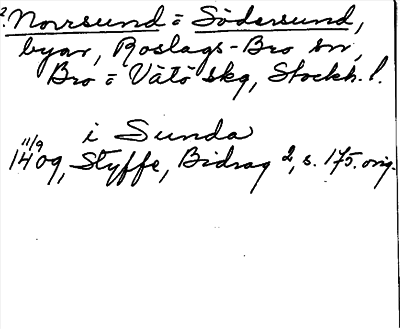 ?Norrsund = Södersund,
byar, Roslags-Bro sn,
Bro = Vätö skg, Stockh. l.
i Sunda
11/9
1409, Styffe, Bidrag 2, s. 175. orig.